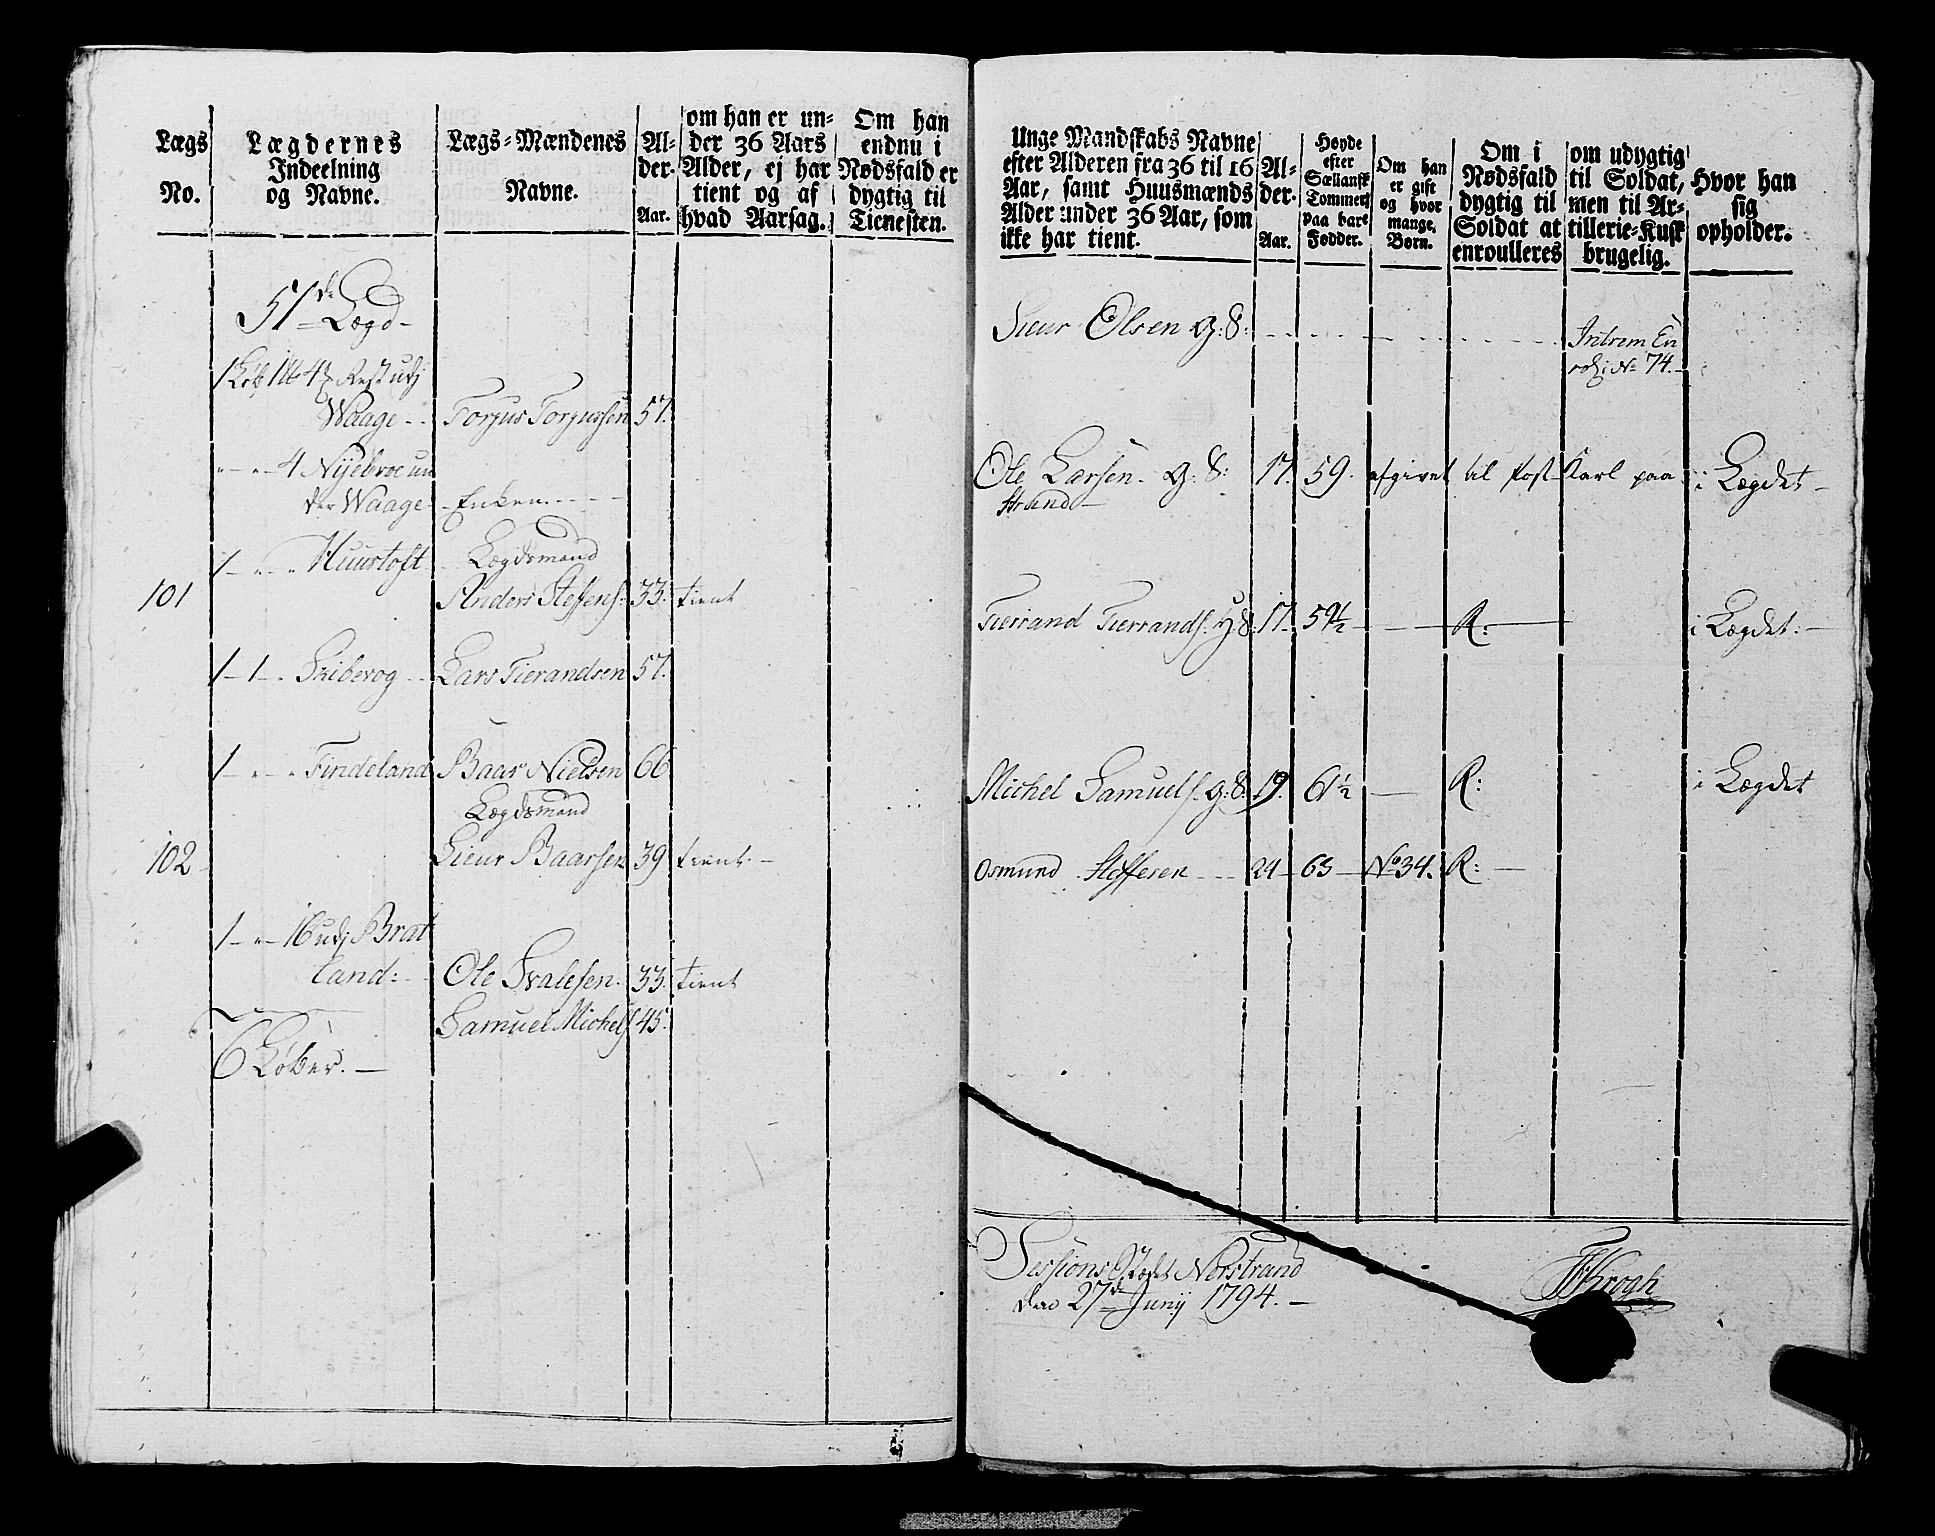 Lægs
No.
Lægdernes
Indeelning
og Navne.
Lægs-Mændenes
Navne.
Al-
der.
Aar.
om han er un-
der 36 Aars
Alder, ej har
tient og af
hvad Aarsag.
Om han
endnu i
Nødsfald er
dygtig til
Tienesten.
51de Lægd
4 Rest udj
Waage - - Torjus Torjussen 57.
" - " - 4 Nyebroe un
der Waage - Enken
1 - " - " Huurtoft - Lægdsmand
101 Anders Steffens: 33. tient
1 - 1 - " Skiberog - - Lars Tierandsen 57.
1 - " - " Findeland Baar Nielsen 66
Lægdsmand
102 Sieur Baarsen 39 tient. -
1 - " - 16 udj Brat
land: - Ole Svalesen. 33. tient
Samuel Michels. 45.
6 Løber. -
Unge Mandskabs Navne
efter Alderen fra 36 til 16
Aar, samt Huusmænds
Alder under 36 Aar, som
ikke har tient.
Al-
der.
Aar.
Høyde
efter
Sællansk
Tommer
paa bare
Fødder.
Om han
er gift
og hvor
mange.
Børn.
Om i
Nødsfald
dygtig til
Soldat at
enroulleres
om udygtig
til Soldat,
men til Ar-
tillerie-Kusk
brugelig.
Hvor han
sig
opholder.
Sieur Olsen G: S:
No 74.
Ole Larsen. G: S: 17. 59. afgivet til Post Karl paa i Lægdet -
Strand -
Tierrand Tierrands. H: S: 17. 59½ - - R: - i Lægdet. -
Michel Samuels. G: S: 19. 61½ - R: i Lægdet
Osmund Stofferen - - 24 - 63 - No 34. R: -
Sessions Nerstrand
den 27de Junij 1794. -
Krogh